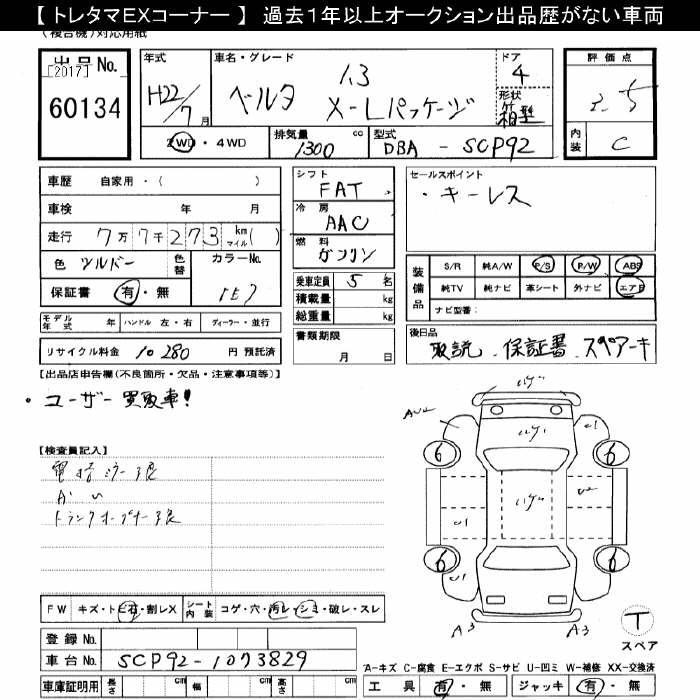 【 トレタマEXコーナー 】 過去１年以上オークション出品歴がない車両
(複合機)対応用紙
出品No.
[2017]
60134
年式
H22/7月
車名・グレード
ベルタ 1.3
X-Lパッケージ
ドア
4
形状
箱型
評価点
3.5
内装
C
2WD・4WD
排気量
1300 cc
型式
DBA - SCP92
車歴 自家用・( )
車検 年 月
走行 7万7千273 km マイル( )
色
色替
カラーNo.
保証書 有・無
シフト
FAT
冷房
AAC
燃料
ガソリン
乗車定員 5 名
積載量 kg
総重量 kg
書類期限
月 日
セールスポイント
・キーレス
装備品
S/R 純A/W P/S P/W ABS
純TV 純ナビ 革シート 外ナビ エアB
ナビ型番:
モデル年式 年 ハンドル 左・右 ディーラー・並行
リサイクル料金 10280 円 預託済
後日品
取説、保証書、スペアーキ
【出品店申告欄(不良箇所・欠品・注意事項等)】
・ユーザー買取車!
【検査員記入】
電格ミラー
トランクオープナー
AU2
U1
6
6
U2
U1
6
6
U1
A3
A3
T
スペア
FW キズ・トビ石・割レX
シート内装 コゲ・穴・汚レ・シミ・破レ・スレ
登録No.
車台No. SCP92-1073829
車庫証明用 長さ cm 幅 cm 高さ cm
A-キズ C-腐食 E-エクボ S-サビ U-凹ミ W-補修 XX-交換済
工具 有・無 ジャッキ 有・無